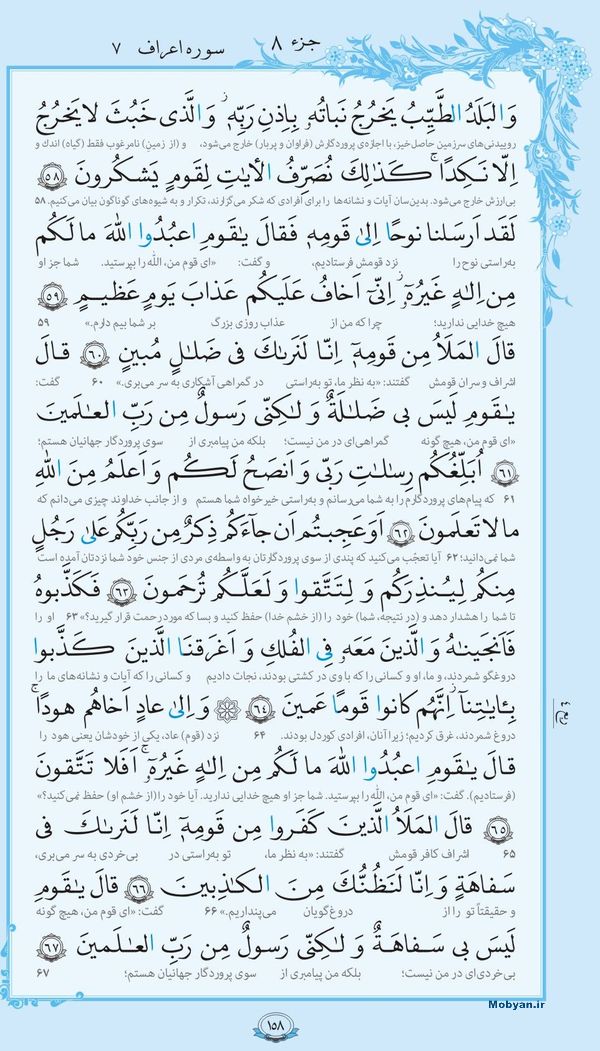 جزء ۸
سوره اعراف ۷
وَ البَلَدُ الطَّيِّبُ يَخرُجُ نَباتُهُ بِاِذنِ رَبِّهِ وَ الَّذى خَبُثَ لا يَخرُجُ
روییدنی‌های سرزمین حاصل‌خیز، با اجازه‌ی پروردگارش (فراوان و پربار) خارج می‌شود، و (از زمین) نامرغوب فقط (گیاه) اندک و
اِلّا نَكِدًا كَذٰلِكَ نُصَرِّفُ الأياتِ لِقَومٍ يَشكُرونَ ﴿۵۸﴾
بی‌ارزش خارج می‌شود. بدین‌سان آیات و نشانه‌ها را برای افرادی که شکر می‌گزارند، تکرار و به شیوه‌های گوناگون بیان می‌کنیم. ۵۸
لَقَد اَرسَلنا نوحًا اِلىٰ قَومِهِ فَقالَ يٰقَومِ اعبُدُوا اللهَ ما لَكُم
به‌راستی نوح را نزد قومش فرستادیم، و گفت: «ای قوم من، الله را بپرستید. شما جز او
مِن اِلٰهٍ غَيرُهُ اِنّى اَخافُ عَلَيكُم عَذابَ يَومٍ عَظيمٍ ﴿۵۹﴾
هیچ خدایی ندارید؛ چرا که من از عذاب روزی بزرگ بر شما بیم دارم.» ۵۹
قالَ المَلَأُ مِن قَومِهِ اِنّا لَنَرىٰكَ فى ضَلٰلٍ مُبينٍ ﴿۶۰﴾ قالَ
اشراف و سران قومش گفتند: «به نظر ما، تو به‌راستی در گمراهی آشکاری به سر می‌بری.» ۶۰ گفت:
يٰقَومِ لَيسَ بى ضَلٰلَةٌ وَ لٰكِنّى رَسولٌ مِن رَبِّ العٰلَمينَ
«ای قوم من، هیچ گونه گمراهی‌ای در من نیست؛ بلکه من پیامبری از سوی پروردگار جهانیان هستم؛
﴿۶۱﴾ اُبَلِّغُكُم رِسٰلٰتِ رَبّى وَ اَنصَحُ لَكُم وَ اَعلَمُ مِنَ اللهِ
۶۱ که پیام‌های پروردگارم را به شما می‌رسانم و به‌راستی خیرخواه شما هستم و از جانب خداوند چیزی می‌دانم که
ما لا تَعلَمونَ ﴿۶۲﴾ اَوَ عَجِبتُم اَن جاءَكُم ذِكرٌ مِن رَبِّكُم عَلىٰ رَجُلٍ
شما نمی‌دانید؛ ۶۲ آیا تعجّب می‌کنید که پندی از سوی پروردگارتان به واسطه‌ی مردی از جنس خود شما نزدتان آمده است
مِنكُم لِيُنذِرَكُم وَ لِتَتَّقوا وَ لَعَلَّكُم تُرحَمونَ ﴿۶۳﴾ فَكَذَّبوهُ
تا شما را هشدار دهد و (در نتیجه، شما) خود را (از خشم خدا) حفظ کنید و بسا که مورد رحمت قرار گیرید؟» ۶۳ او را
فَاَنجَينٰهُ وَ الَّذينَ مَعَهُ فِى الفُلكِ وَ اَغرَقنَا الَّذينَ كَذَّبوا
دروغگو شمردند، و ما، او و کسانی را که با وی در کشتی بودند، نجات دادیم و کسانی را که آیات و نشانه‌های ما را
بِـٔايٰتِنا اِنَّهُم كانوا قَومًا عَمينَ ﴿۶۴﴾ وَ اِلىٰ عادٍ اَخاهُم هودًا
دروغ شمردند، غرق کردیم؛ زیرا آنان، افرادی کوردل بودند. ۶۴ نزد (قوم) عاد، یکی از خودشان یعنی هود را
قالَ يٰقَومِ اعبُدُوا اللهَ ما لَكُم مِن اِلٰهٍ غَيرُهُ اَفَلا تَتَّقونَ
(فرستادیم). گفت: «ای قوم من، الله را بپرستید. شما جز او هیچ خدایی ندارید. آیا خود را (از خشم او) حفظ نمی‌کنید؟»
﴿۶۵﴾ قالَ المَلَأُ الَّذينَ كَفَروا مِن قَومِهِ اِنّا لَنَرىٰكَ فى
۶۵ اشراف کافر قومش گفتند: «به نظر ما، تو به‌راستی در بی‌خردی به سر می‌بری،
سَفاهَةٍ وَ اِنّا لَنَظُنُّكَ مِنَ الكٰذِبينَ ﴿۶۶﴾ قالَ يٰقَومِ
و حقیقتاً تو را از دروغ‌گویان می‌پنداریم.» ۶۶ گفت: «ای قوم من، هیچ گونه
لَيسَ بى سَفاهَةٌ وَ لٰكِنّى رَسولٌ مِن رَبِّ العٰلَمينَ ﴿۶۷﴾
بی‌خردی‌ای در من نیست؛ بلکه من پیامبری از سوی پروردگار جهانیان هستم؛ ۶۷
Mobyan.ir
۱۵۸